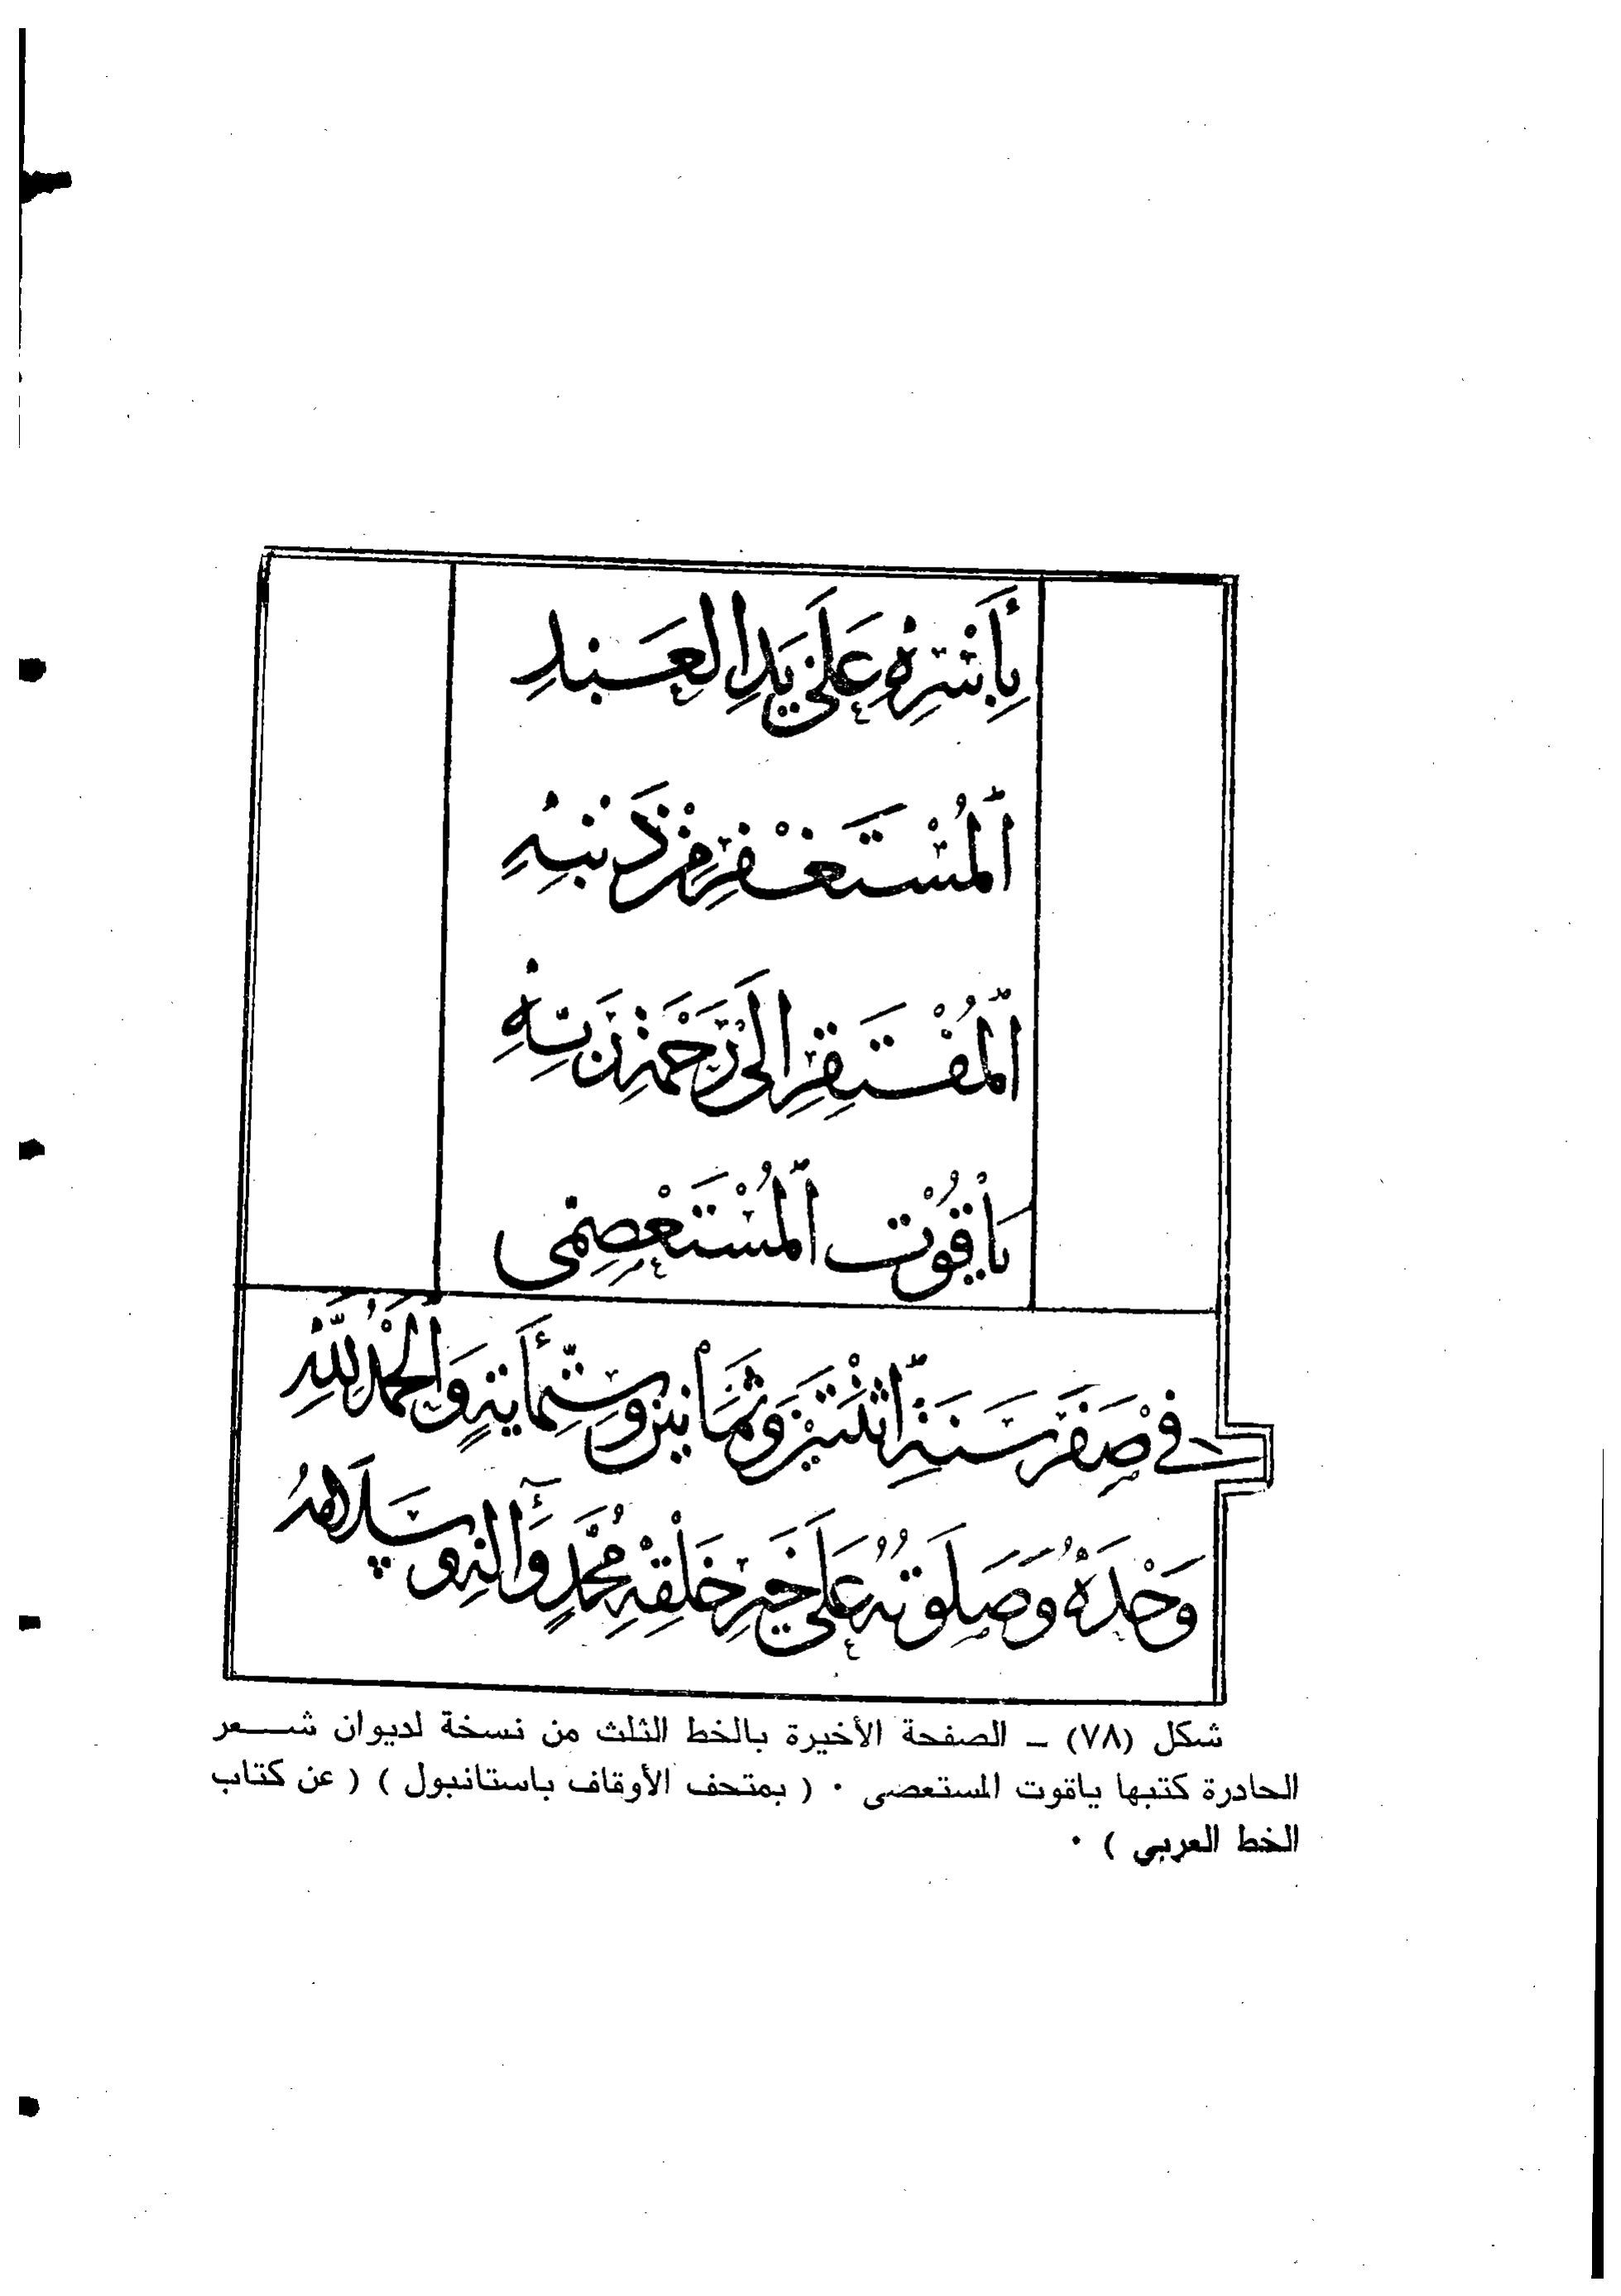 بِأَسْرِهِ عَلَى يَدِ الْعَبْدِ
اَلْمُسْتَغْفِرِ مِنْ ذَنْبِهِ
اَلْمُفْتَقِرِ إِلَى رَحْمَةِ رَبِّهِ
يَاقُوْت اَلْمُسْتَعْصِمِي
فِي صَفَر سَنَةِ اثْنَتَيْنِ وَثَمَانِينَ وَسِتِّمَأَيَةٍ وَالْحَمْدُ لِلَّهِ
وَحْدَهُ وَصَلَوتُهُ عَلَى خَيْرِ خَلْقِهِ مُحَمَّدٍ وَآلِهِ وَسَلَامُهُ
شكل (٧٨) – الصفحة الأخيرة بالخط الثلث من نسخة لديوان شـــعر
الحادرة كتبها ياقوت المستعصى ٠ ( بمتحف الأوقاف باستانبول ) ( عن كتاب
الخط العربي ) ٠